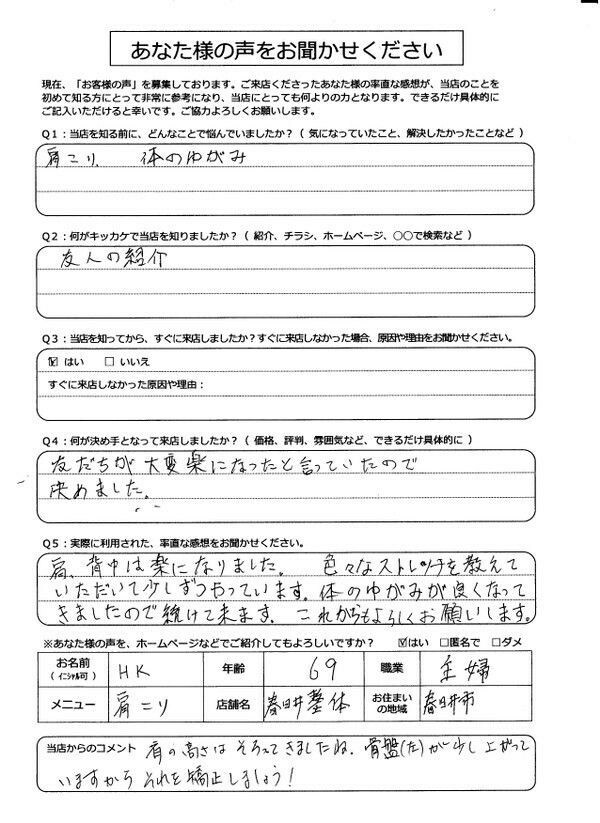 あなた様の声をお聞かせください
現在、「お客様の声」を募集しております。ご来店くださったあなた様の率直な感想が、当店のことを
初めて知る方にとって非常に参考になり、当店にとっても何よりの力となります。できるだけ具体的に
ご記入いただけると幸いです。ご協力よろしくお願いします。
Q1：当店を知る前に、どんなことで悩んでいましたか？（ 気になっていたこと、解決したかったことなど ）
肩こり、 体のゆがみ
Q2：何がキッカケで当店を知りましたか？（ 紹介、チラシ、ホームページ、〇〇で検索など ）
友人の紹介
Q3：当店を知ってから、すぐに来店しましたか？すぐに来店しなかった場合、原因や理由をお聞かせください。
☑ はい □ いいえ
すぐに来店しなかった原因や理由：
Q4：何が決め手となって来店しましたか？（ 価格、評判、雰囲気など、できるだけ具体的に ）
友だちが大変楽になったと言っていたので
決めました。
Q5：実際に利用された、率直な感想をお聞かせください。
肩、背中は楽になりました。 色々なストレッチを教えて
いただいて少しずつやっています。体のゆがみが良くなって
きましたので続けて来ます。これからもよろしくお願いします。
※あなた様の声を、ホームページなどでご紹介してもよろしいですか？ ☑はい □匿名で □ダメ
お名前（イニシャル可） HK 年齢 69 職業 主婦
メニュー 肩こり 店舗名 春日井整体 お住まいの地域 春日井市
当店からのコメント 肩の高さはそろってきましたね。骨盤(左)が少し上がって
いますからそれを矯正しましょう！